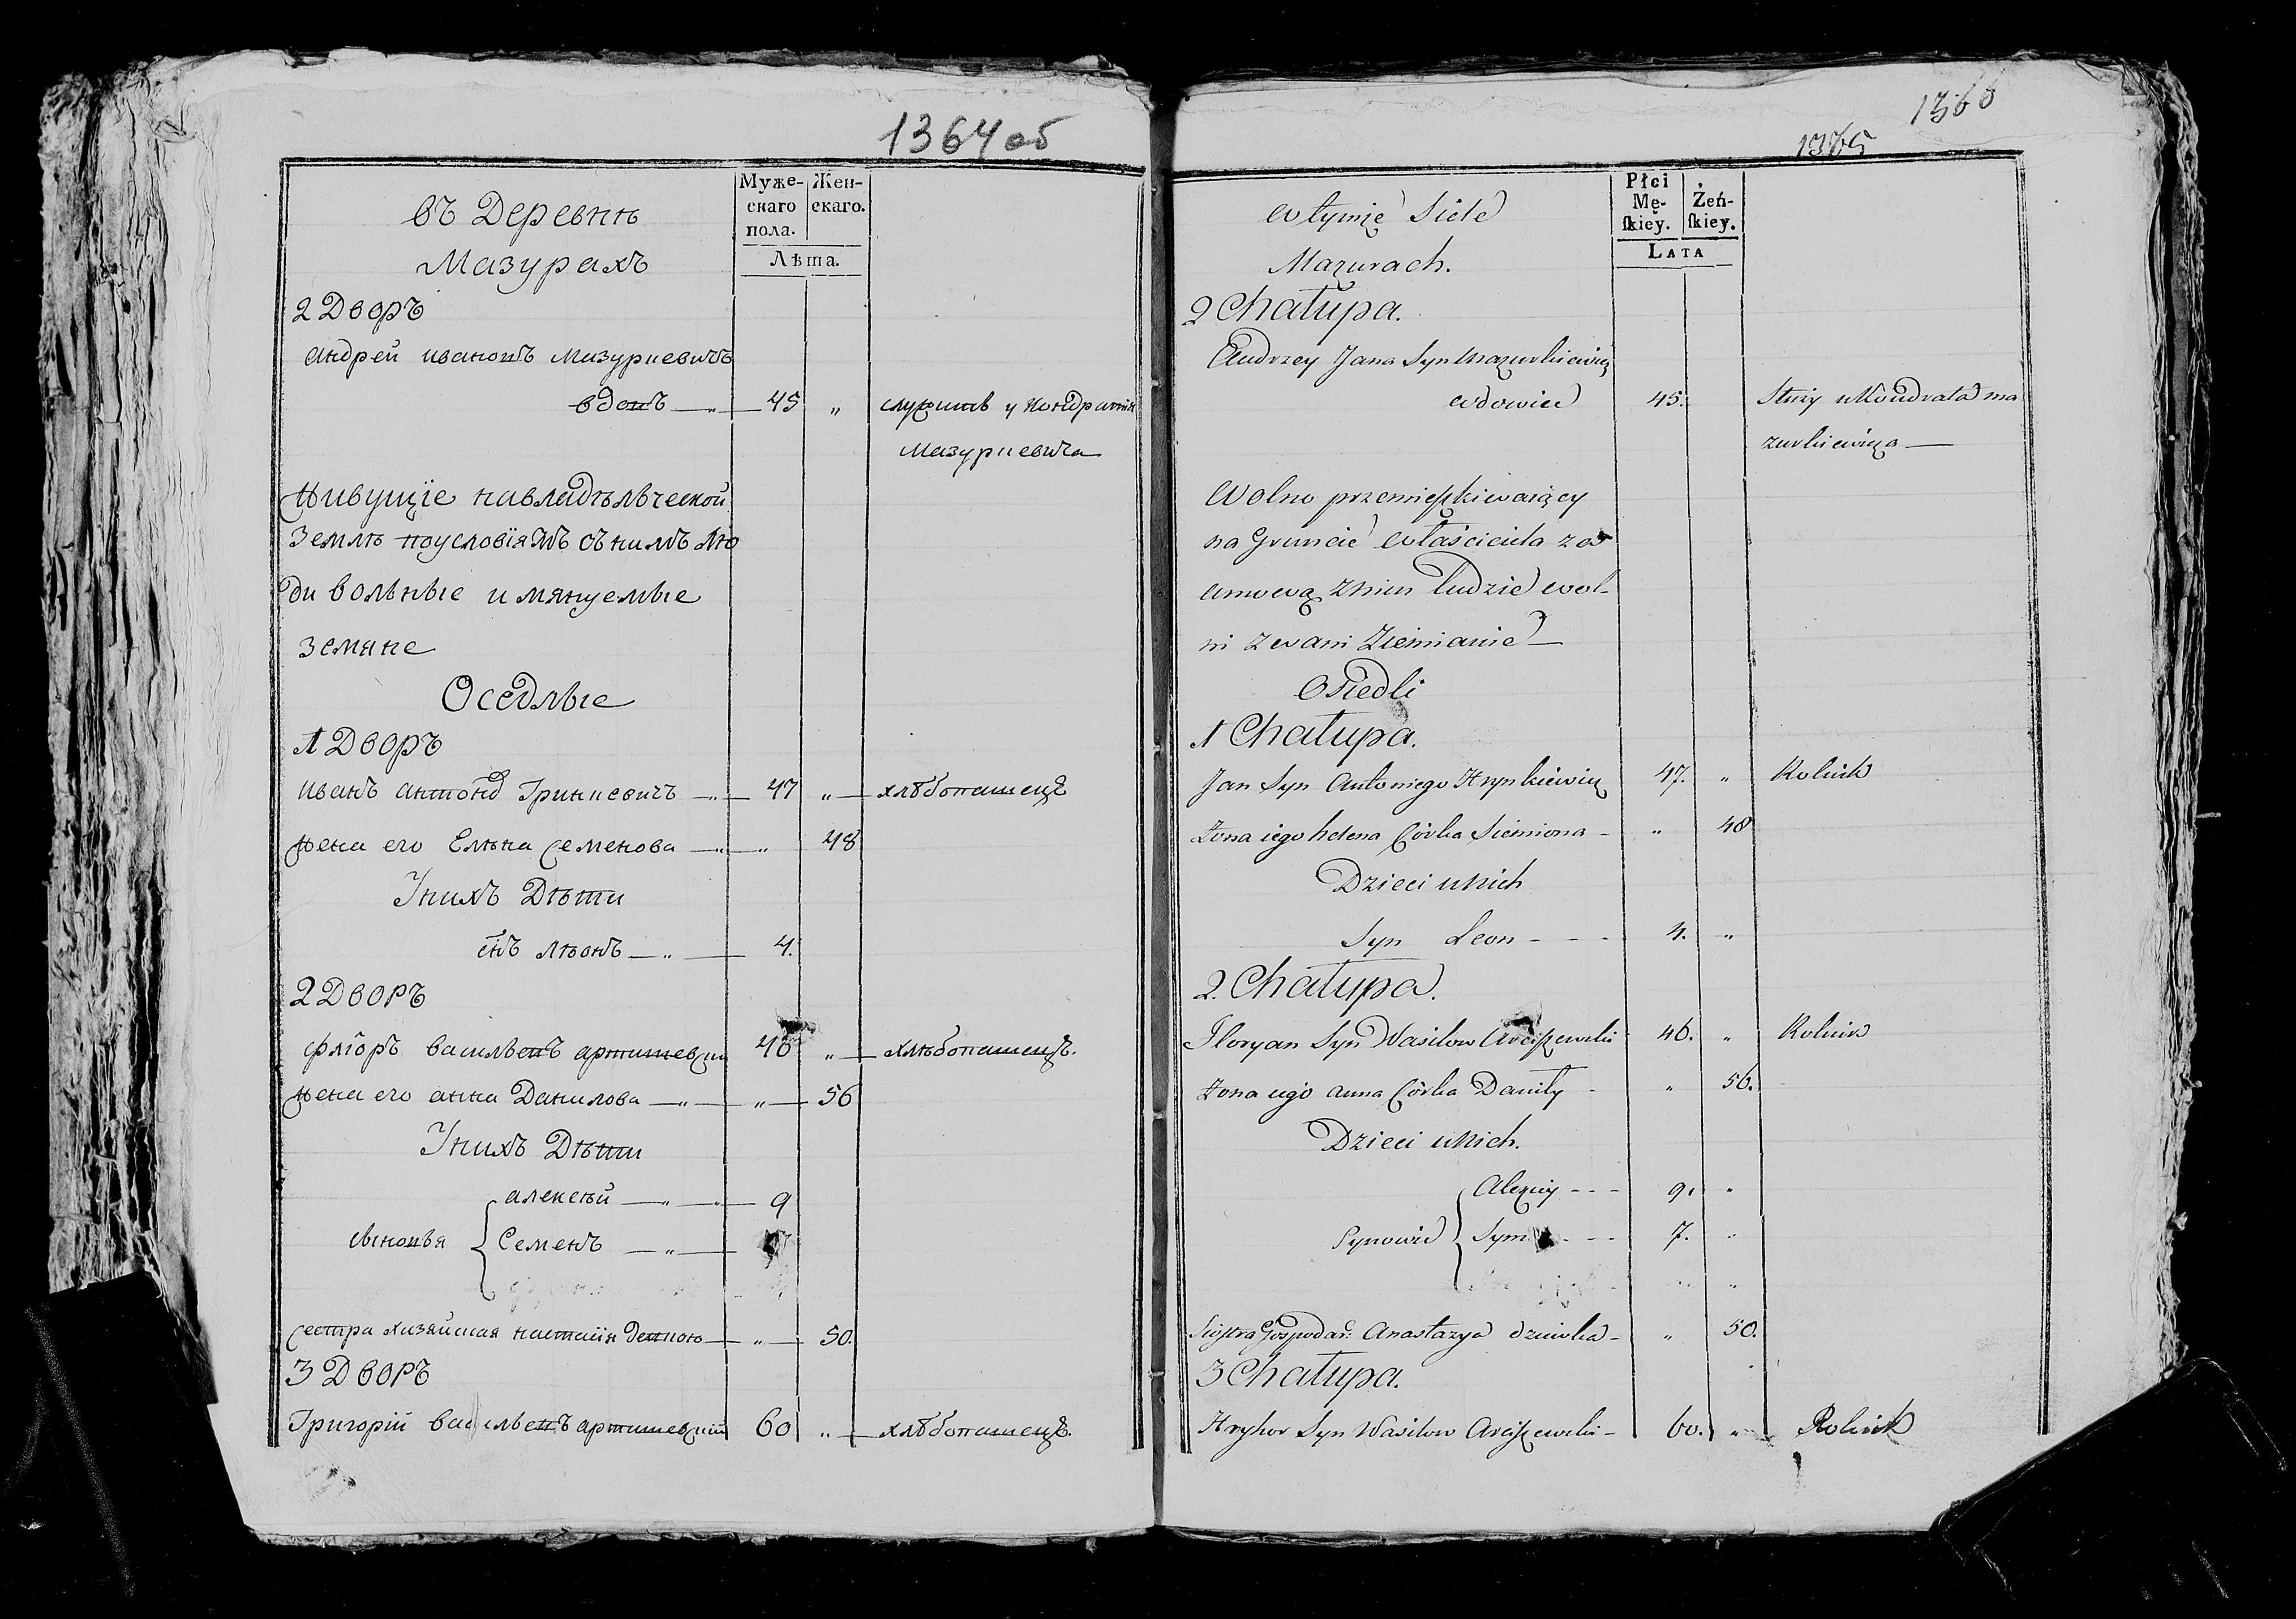 1364об
Муже- Жен-
скаго скаго.
пола.
Лѣта.
въ Деревнѣ
Мазурахъ
2 Дворъ
Андрей Ивановъ Мазуркевичъ
вдовъ —„— 45 „ служитъ у Кондратія
Мазуркевича
Живущіе на владѣльческой
землѣ по условіямъ съ нимъ лю
ди вольные имянуемые
земяне
Оседлые
1 Дворъ
Иванъ Антоновъ Гринкевичъ —„— 47 „ — хлѣбопашецъ
жена его Елѣна Семенова —„— „ 48
У нихъ Дѣти
сынъ Лѣонъ —„— 4.
2 Дворъ
Флёръ Васильевъ Артишевскій 46 „ — хлѣбопашецъ.
жена его Анна Данилова —„— „ — 56
У нихъ Дѣти
Алексѣй —„— 9
сыновья { Семенъ —„—
сестра хозяйская Настасія девкою — „ — 50.
3 Дворъ
Григорій Васильевъ Артишевскій 60 „ — хлѣбопашецъ.
1366
1365
Płci
Mę- Żeń-
ſkiey. ſkiey.
LATA
w tymże Siele
Mazurach.
2 Chałupa.
Andrzey Jana Syn Mazurkiewicz
wdowiec 45. Służy u Kondrata Ma
zurkiewicza —
Wolno przemieszkiwaiący
na Gruncie właściciela za
umową z nim ludzie wol-
ni zwani Ziemianie —
Osiedli
1 Chałupa.
Jan Syn Antoniego Hrynkiewicz 47. „ Rolnik
Żona iego Helena Córka Siemiona - „ 48
Dzieci u Nich
Syn Leon - - - 4. „
2. Chałupa.
Floryan Syn Wasilow Arciszewski 46. „ Rolnik
Żona iego Anna Córka Daniły - „ 56.
Dzieci u Nich.
Alexiey - - - 9. „
Synowie { - - - 7. „
Siostra Gospodar: Anastazya dziewka - „ 50.
3 Chałupa.
Hryhor Syn Wasilow Arciszewski - 60. „ Rolnik